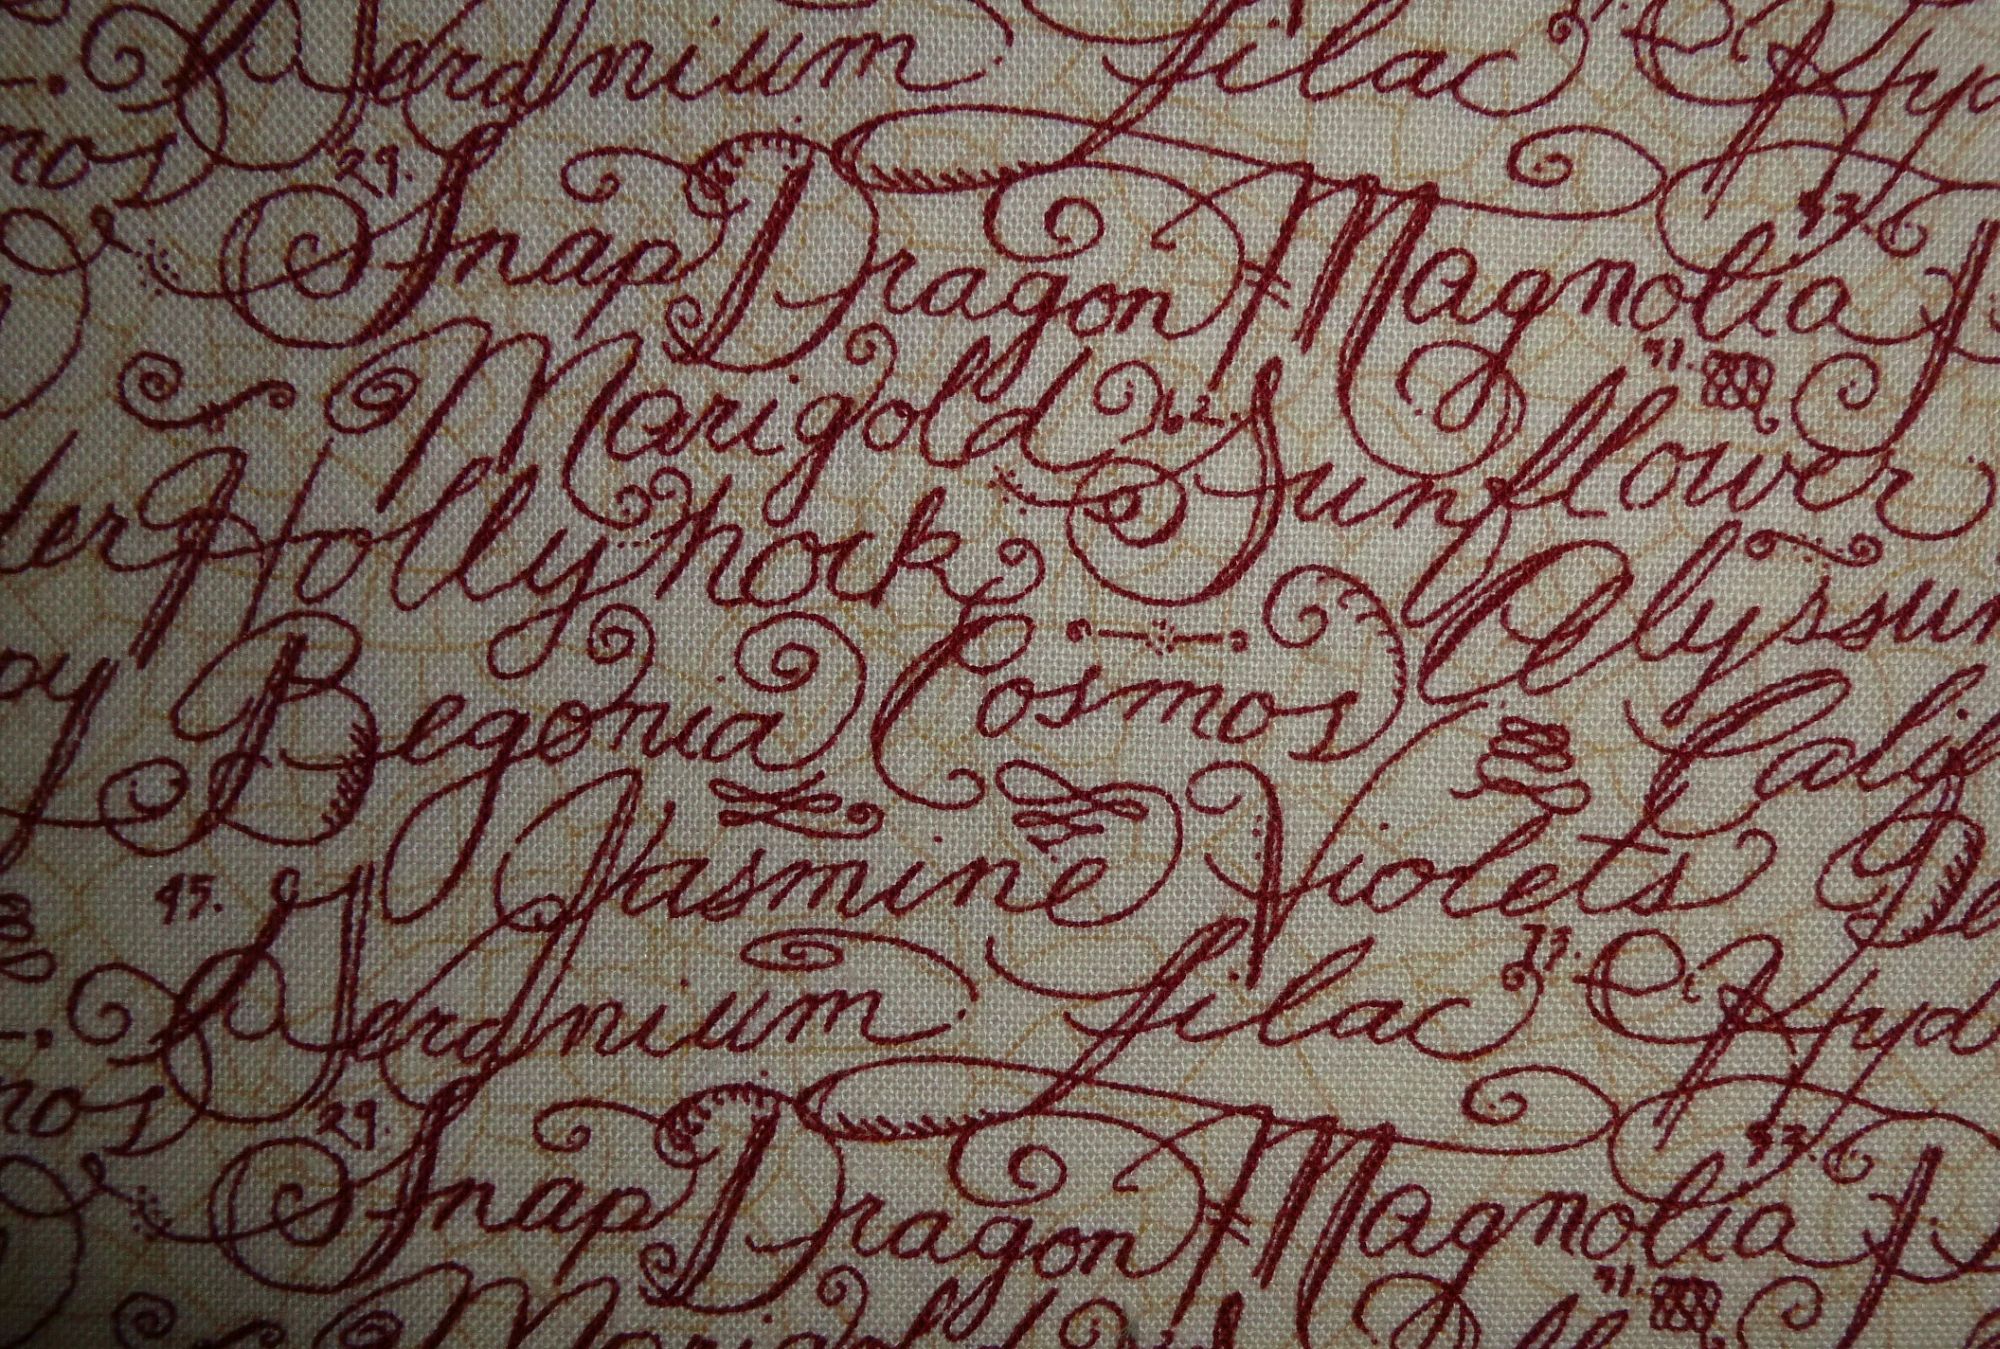 Geranium Lilac Hyd
nos 29. Snap Dragon Magnolia 53.
Marigold 62. Sunflower 41.
der Hollyhock Alyssum
oy Begonia Cosmos Calif
Jasmine Violets De
45. Geranium Lilac 33. Hyd
nos 29. Snap Dragon Magnolia 53.
Marigold 41.